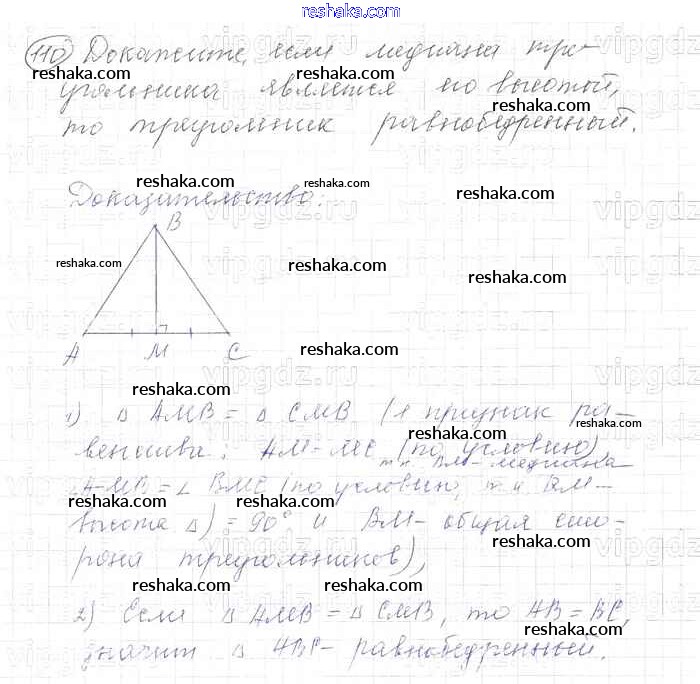 reshaka.com
110 Докажите, если медиана тре-
reshaka.com reshaka.com reshaka.com
угольника является его высотой,
reshaka.com
то треугольник равнобедренный.
reshaka.com reshaka.com
Доказательство:
reshaka.com
vipgdz.ru
B
reshaka.com reshaka.com reshaka.com
A M C
reshaka.com
reshaka.com
1) Δ AMB = Δ CMB (1 признак ра-
reshaka.com reshaka.com
венства: AM = MC (по условию,
т.к. BM - медиана
∠AMB = ∠ BMC (по условию, т.к. BM -
reshaka.com reshaka.com
высота Δ) = 90° и BM - общая сто-
reshaka.com
рона треугольников),
reshaka.com reshaka.com
2) Если Δ AMB = Δ CMB, то AB = BC,
reshaka.com
значит Δ ABC - равнобедренный.